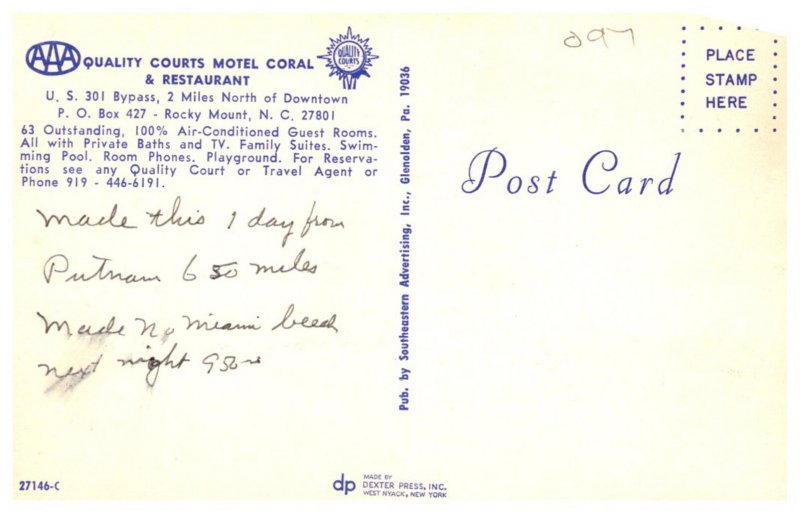 097
AAA QUALITY COURTS MOTEL CORAL
& RESTAURANT
QUALITY COURTS
U. S. 301 Bypass, 2 Miles North of Downtown
P. O. Box 427 - Rocky Mount, N. C. 27801
63 Outstanding, 100% Air-Conditioned Guest Rooms.
All with Private Baths and TV. Family Suites. Swim-
ming Pool. Room Phones. Playground. For Reserva-
tions see any Quality Court or Travel Agent or
Phone 919 - 446-6191.
made this 1 day from
Putnam 650 miles
Made No Miami beach
next night
Pub. by Southeastern Advertising, Inc., Glenolden, Pa. 19036
PLACE
STAMP
HERE
Post Card
27146-C
dp MADE BY
DEXTER PRESS, INC.
WEST NYACK, NEW YORK